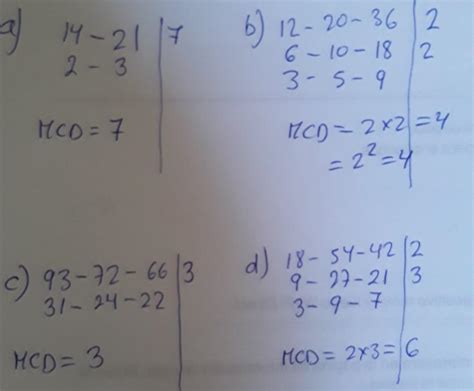 a) 14 - 21 | 7
2 - 3
MCD = 7
b) 12 - 20 - 36 | 2
6 - 10 - 18 | 2
3 - 5 - 9
MCD = 2×2 = 4
= 2² = 4
c) 93 - 72 - 66 | 3
31 - 24 - 22
MCD = 3
d) 18 - 54 - 42 | 2
9 - 27 - 21 | 3
3 - 9 - 7
MCD = 2×3 = 6